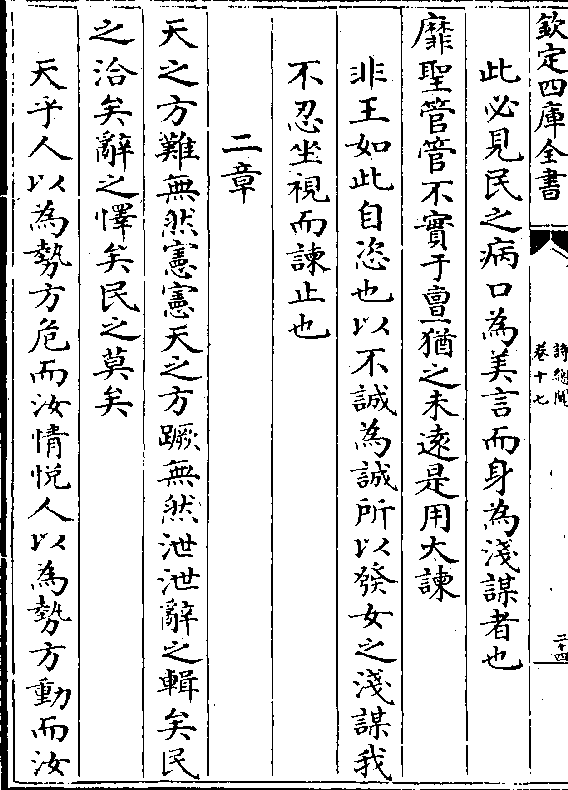 欽定四庫全書
詩總聞
卷十七
二十四
此必見民之病口為美言而身為淺謀者也
靡聖管管不實于亶猶之未遠是用大諫
非王如此自恣也以不誠為誠所以發女之淺謀我
不忍坐視而諫止也
二章
天之方難無然憲憲天之方蹶無然泄泄辭之輯矣民
之洽矣辭之懌矣民之莫矣
天乎人以為勢方危而汝情悦人以為勢方動而汝